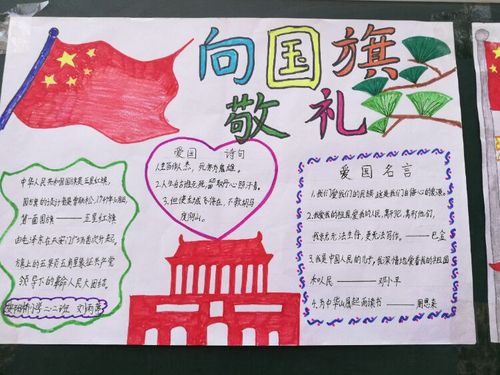 向国旗
敬礼
中华人民共和国国旗是五星红旗,
国旗的设计者是曾联松,1949年
第一面国旗——五星红旗
由毛泽东在天安门广场首次升起。
旗上的五颗五角星象征共产党
领导下的革命人民大团结。
小学二二班
爱国 诗句
1.生当作人杰,死亦为鬼雄。
2.人生自古谁无死,留取丹心照汗青。
3.但使龙城飞将在,不教胡马
度阴山。
爱国名言
1.我们爱我们的民族,这是我们自信心的源泉。
2.我爱我的祖国,爱我的人民,离开它,离开他们,
我就无法生存,更无法写作。——巴金
3.我是中国人民的儿子,我深情地爱着我的祖国
和人民 ——邓小平
4.为中华崛起而读书 ——周恩来